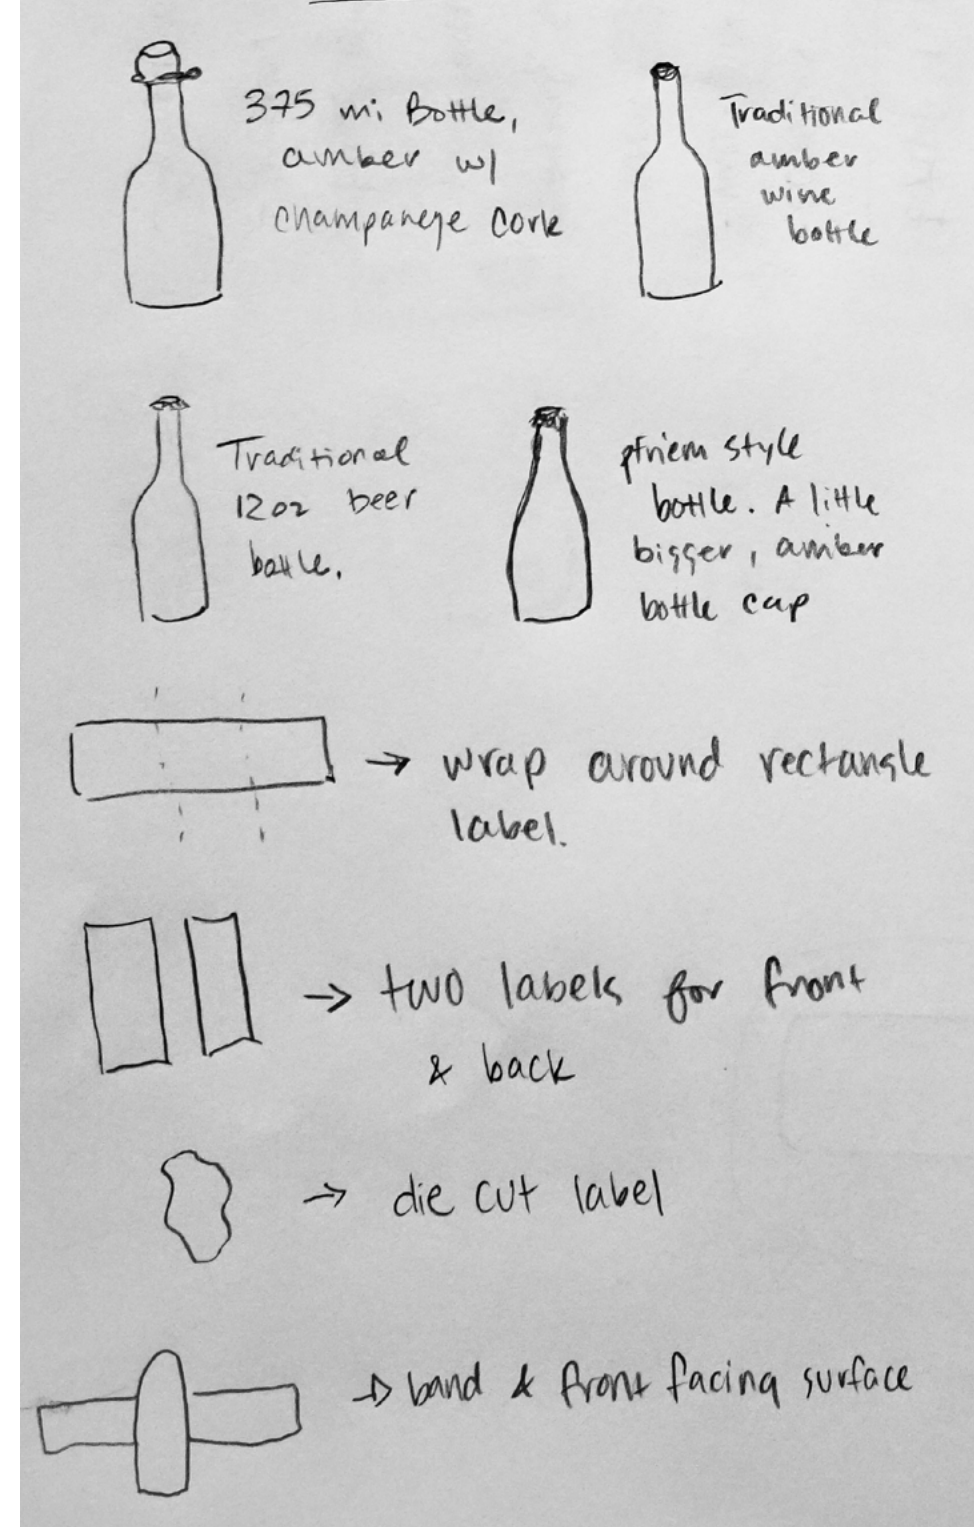 375 mi Bottle,
amber w/
champaneye cork
Traditional
amber
wine
bottle
Traditional
12oz beer
bottle.
pfriem style
bottle. A little
bigger, amber
bottle cap
→ wrap around rectangle
label.
→ two labels for front
& back
→ die cut label
→ band & front facing surface